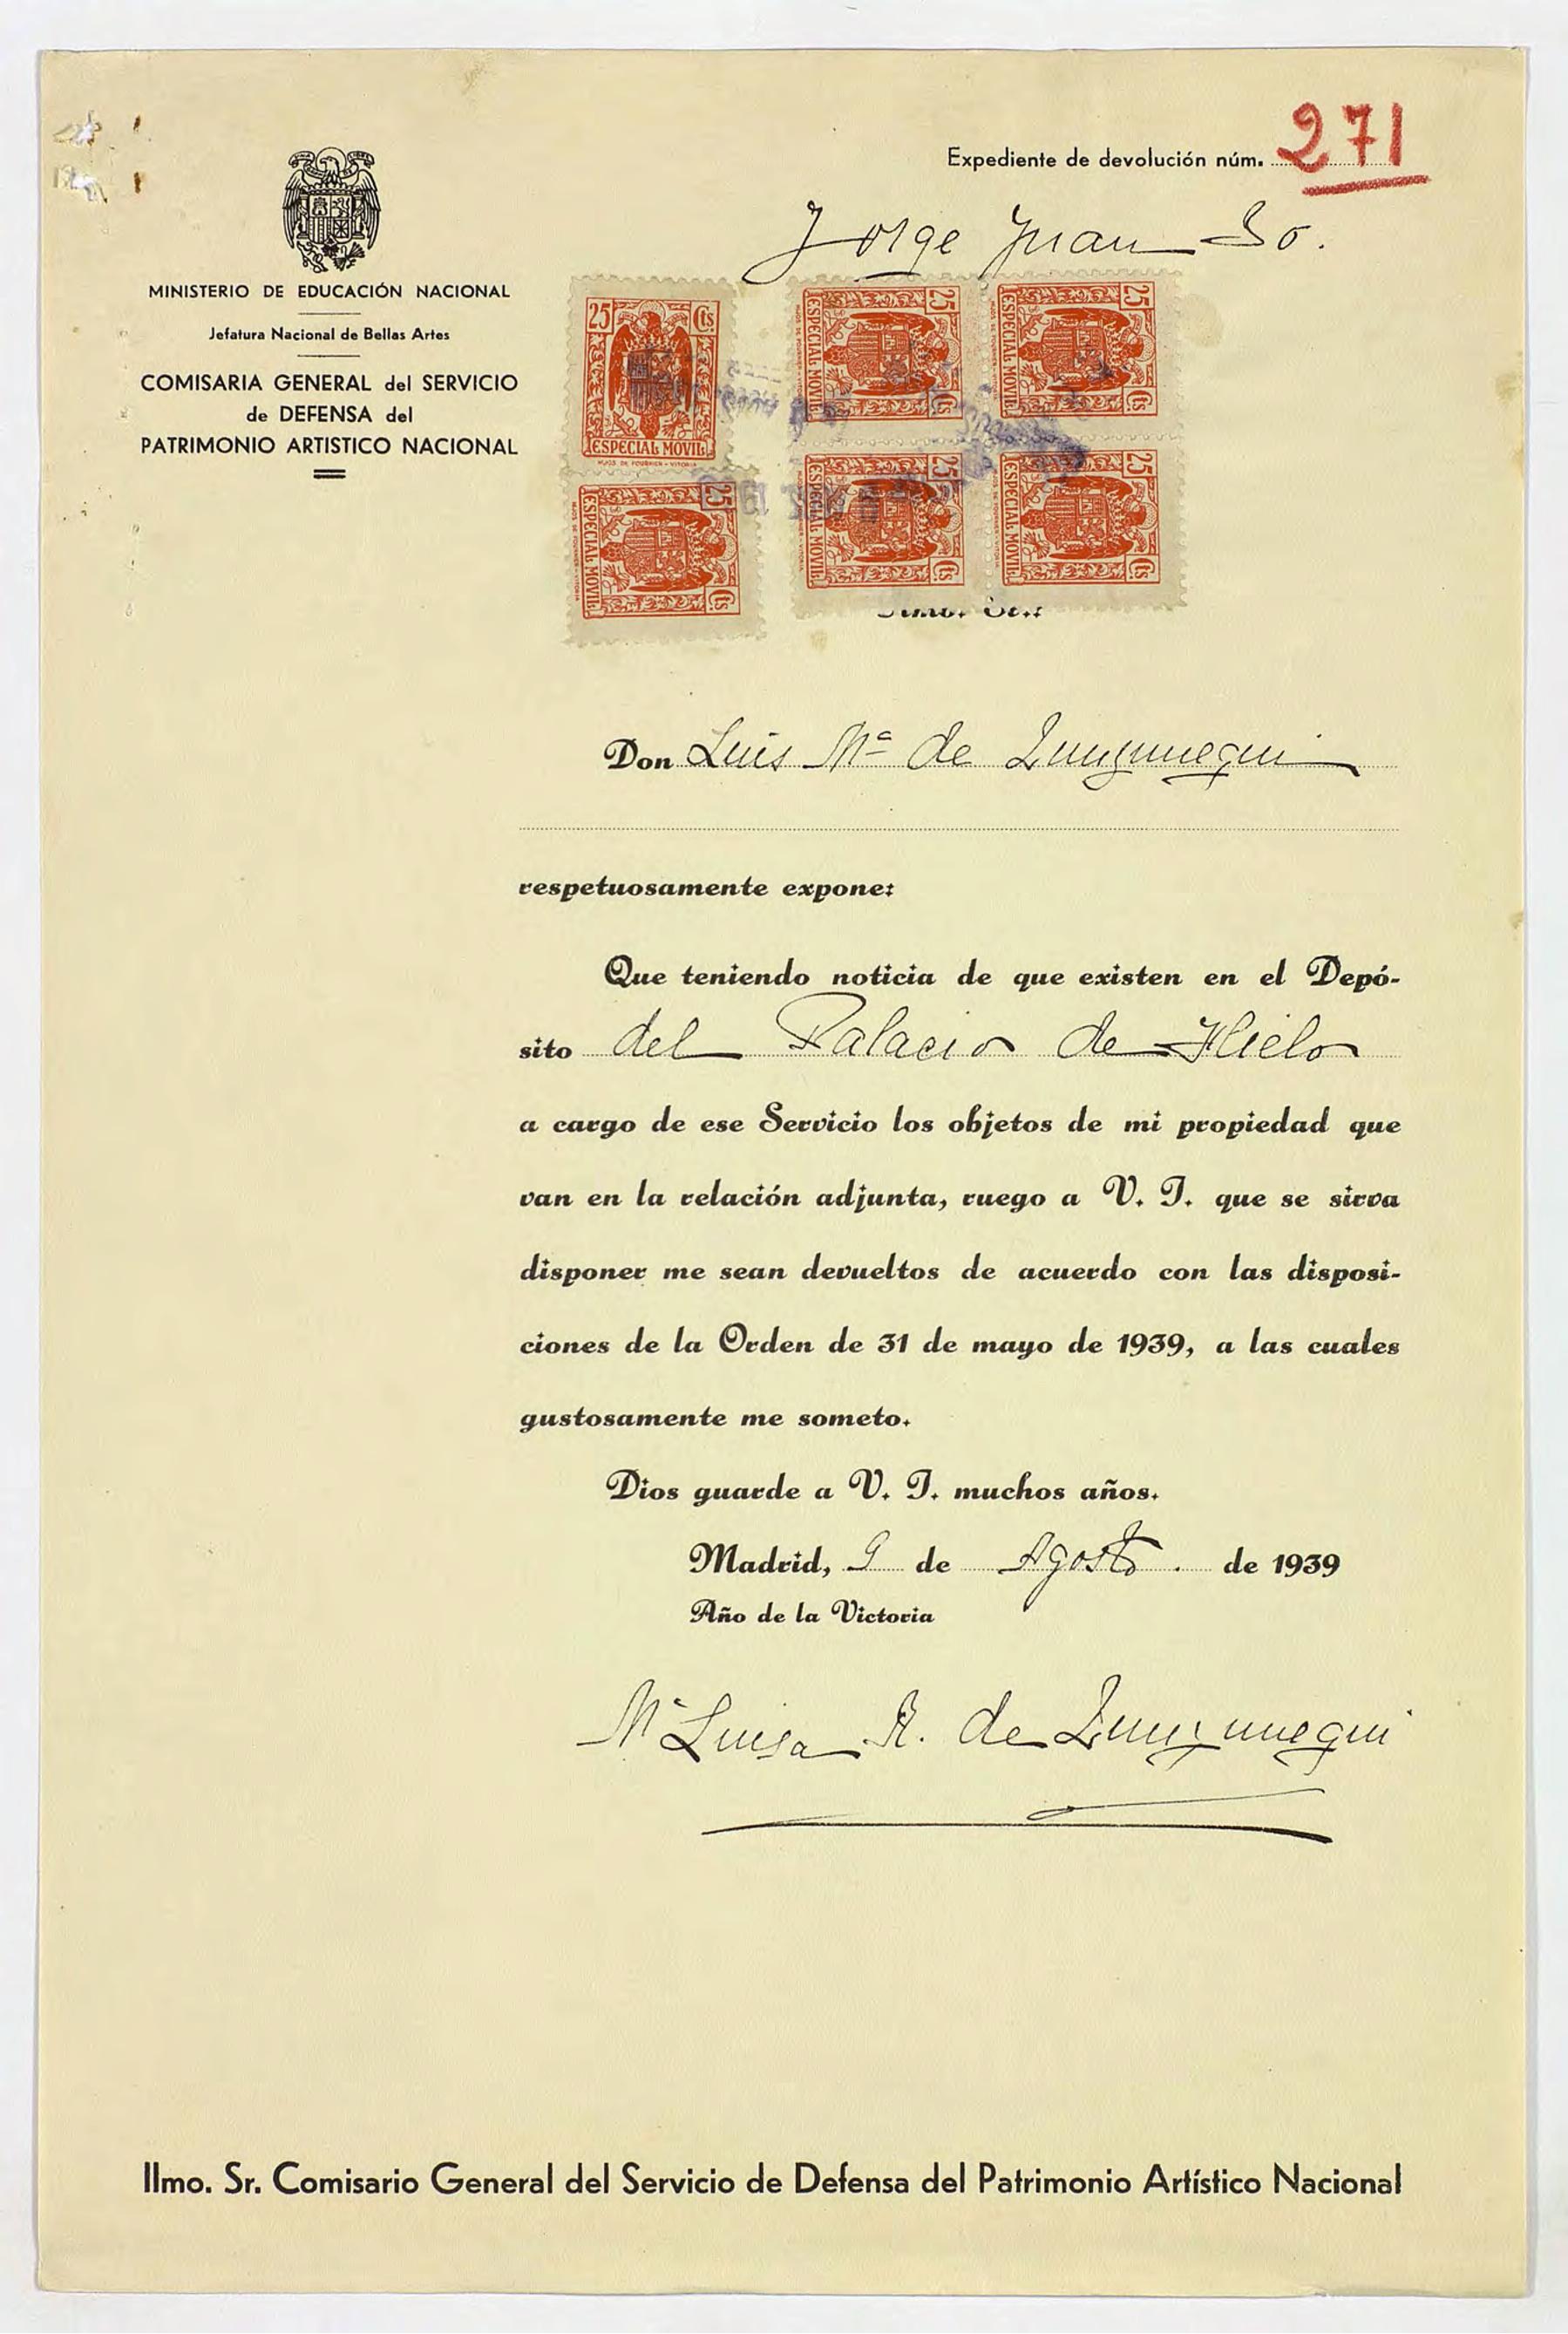 Expediente de devolución núm. 271
Jorge Juan
MINISTERIO DE EDUCACIÓN NACIONAL
Jefatura Nacional de Bellas Artes
COMISARIA GENERAL del SERVICIO
de DEFENSA del
PATRIMONIO ARTISTICO NACIONAL
25 Cts.
ESPECIAL MOVIL
HIJOS DE FOURNIER - VITORIA
25 Cts.
ESPECIAL MOVIL
25 Cts.
ESPECIAL MOVIL
25 Cts.
ESPECIAL MOVIL
25 Cts.
ESPECIAL MOVIL
25 Cts.
ESPECIAL MOVIL
Ilmo. Sr.:
Don Luis Mª de Zunzunegui
respetuosamente expone:
Que teniendo noticia de que existen en el Depó-
sito del Palacio de Hielo
a cargo de ese Servicio los objetos de mi propiedad que
van en la relación adjunta, ruego a V. I. que se sirva
disponer me sean devueltos de acuerdo con las disposi-
ciones de la Orden de 31 de mayo de 1939, a las cuales
gustosamente me someto.
Dios guarde a V. I. muchos años.
Madrid, 9 de Agosto. de 1939
Año de la Victoria
Mª Luisa R. de Zunzunegui
Ilmo. Sr. Comisario General del Servicio de Defensa del Patrimonio Artístico Nacional